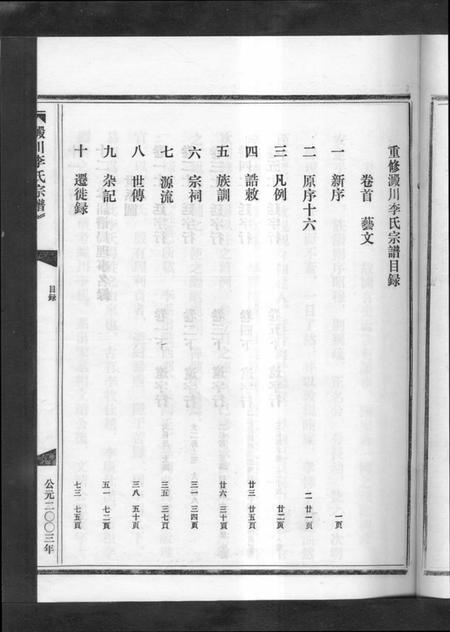 重修澱川李氏宗譜目録
卷首 藝文
一 新序 一頁
二 原序十六 二 廿一頁
三 凡例 廿二頁
四 誥敕 廿三 廿五頁
五 族訓 廿六 三十頁
六 宗祠 三一 三四頁
七 源流 三五 三七頁
八 世傳 三八 五十頁
九 杂記 五一 七二頁
十 遷徙録 七三 七五頁
澱川李氏宗譜
目録
公元二〇〇三年